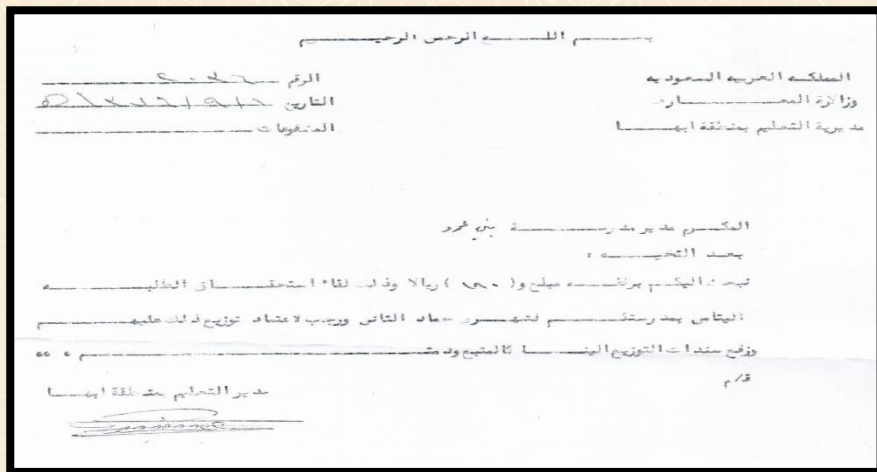 بسم الله الرحمن الرحيم
المملكه العربيه السعوديه
وزارة المعارف
مديرية التعليم بمنطقة ابها
الرقم
التاريخ
المدفوعات
المكرم مدير مدرسة بني عمرو
بعد التحيه :
نبعث اليكم برفقه مبلغ و( ١٨٠ ) ريالا وذلك لقاء استحقاق الطلبه
اليتامى بمدرستكم لشهري جماد الثاني ورجب لاعتماد توزيع ذلك عليهم
ورفع سندات التوزيع الينا كالمتبع ودمتم ،
ق/م
مدير التعليم بمنطقة ابها